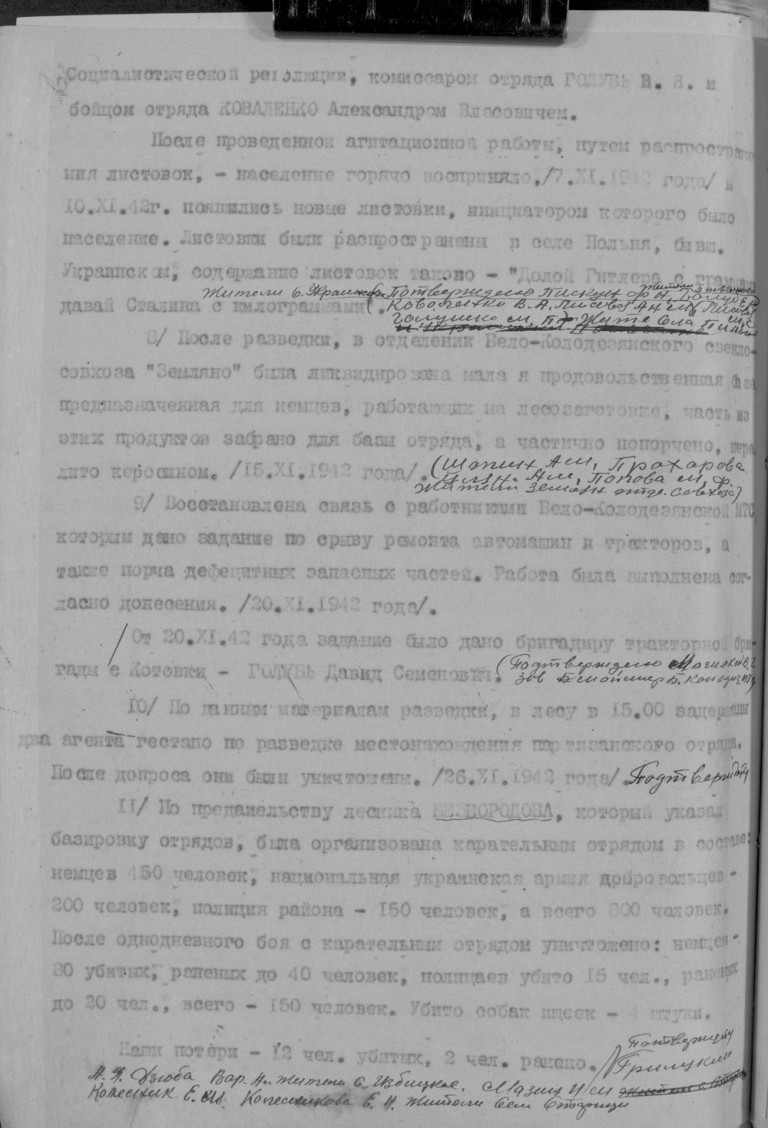 Социалистической революции, комиссаром отряда ГОЛУБЬ И. Я. и
бойцом отряда КОВАЛЕНКО Александром Власовичем.
После проведенной агитационной работы, путем распростране
ния листовок, - население горячо восприняло,/7.XI.1942 года/ и
10.XI.42г. появились новые листовки, инициатором которого было
население. Листовки были распространены в селе Польня, бывш.
Украинском, содержание листовок таково - "Долой Гитлера с
Жители с. Подтверждено
давай Сталина с килограммами
8/ После разведки, в отделении Бело-Колодезянского свекло-
совхоза "Земляно" была ликвидирована мала я продовольственная база
предназначенная для немцев, работающих на лесозаготовке, часть из
этих продуктов забрано для базы отряда, а частично попорчено,
лито керосином. /15.XI.1942 года/. (Шапих А М, Прохарова
Попова М, Ф.
Жители совхоза)
9/ Восстановлена связь с работниками Бело-Колодезянской МТС
которым дано задание по срыву ремонта автомашин и тракторов, а
также порча дефицитных запасных частей. Работа была выполнена сог-
ласно донесения. /20.XI.1942 года/.
От 20.XI.42 года задание было дано бригадиру тракторной бри-
гады с Котовки - ГОЛУБЬ Давид Семенович. (Подтверждено
10/ По данным материалам разведки, в лесу в 15.00 задержаны
два агента гестапо по разведке местонахождения партизанского отряда.
После допроса они были уничтожены. /26.XI.1942 года/
11/ По предательству лесника БЕЗБОРОДОВА, который указал
базировку отрядов, была организована карательным отрядом в составе:
немцев 450 человек, национальная украинская армия добровольцев -
200 человек, полиция района - 150 человек, а всего 800 человек.
После однодневного боя с карательным отрядом уничтожено: немцев -
80 убитых, раненых до 40 человек, полицаев убито 15 чел., раненых
до 20 чел., всего - 150 человек. Убито собак ищеек - 4 штуки.
Наши потери - 12 чел. убитых, 2 чел. ранено.
Дзюба Вар. И. жители с. Избицкое.
Колесник Е. М. Колесникова Е. И. жители села Старица